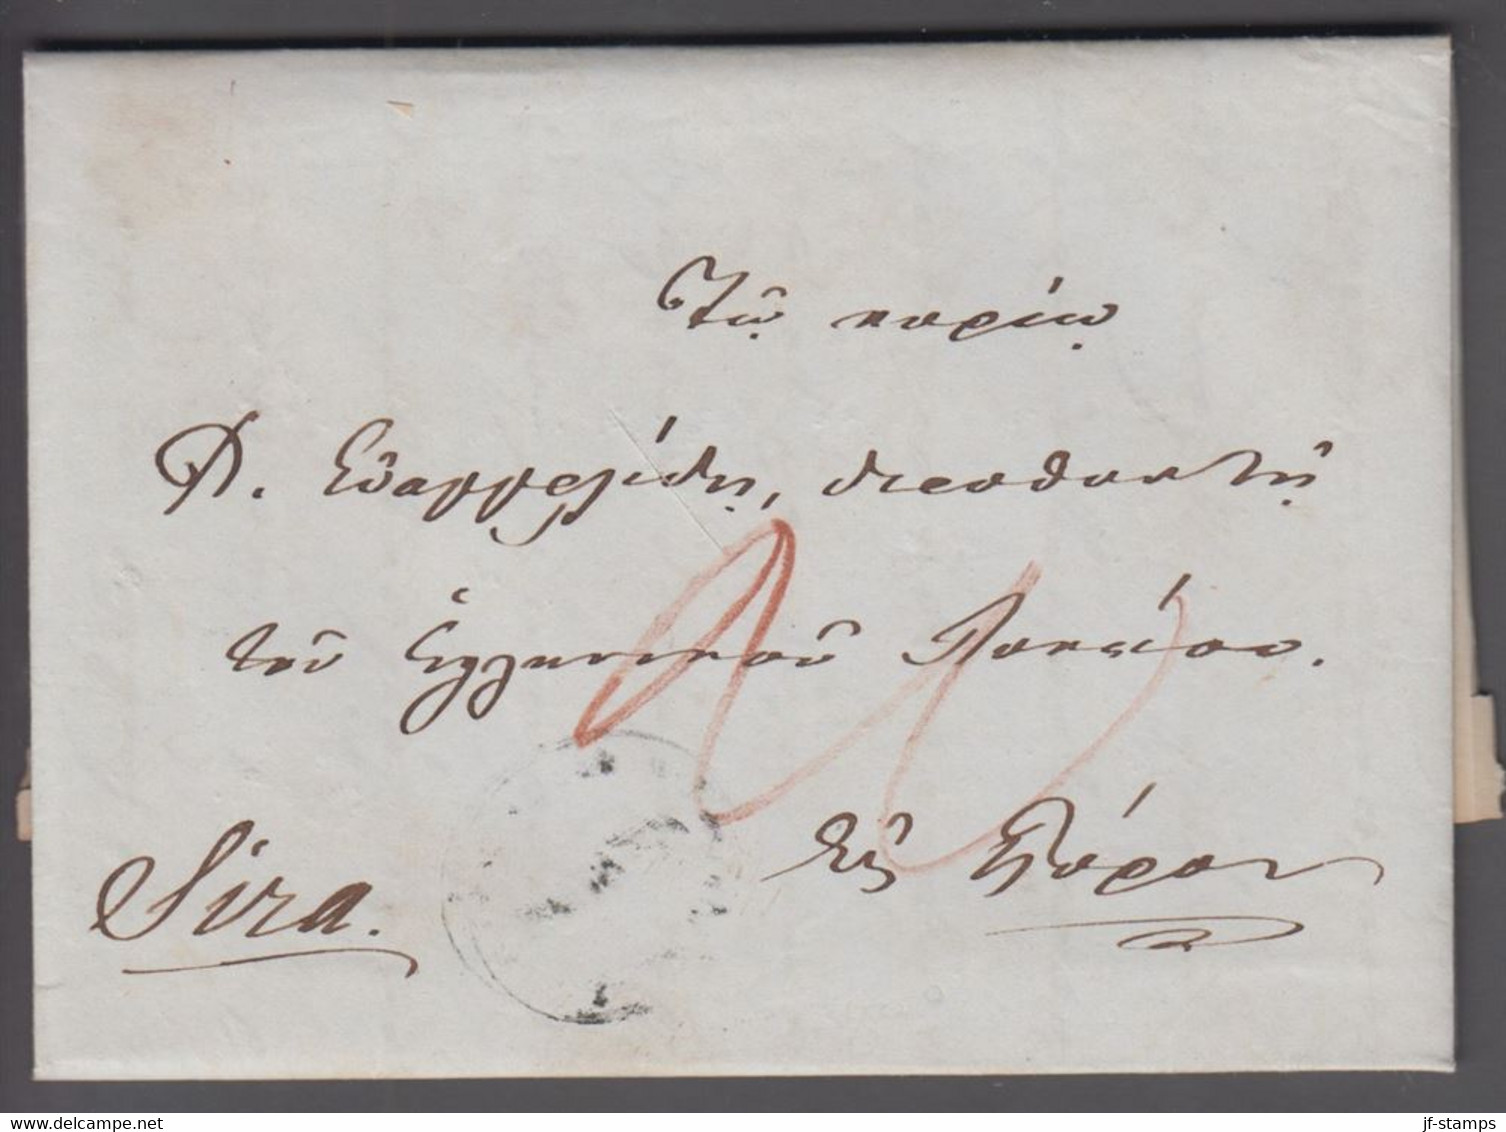 Τῷ κυρίῳ
Φ. Εὐαγγελίδῃ, διευθυντῇ
τοῦ Ἑλληνικοῦ Λυκείου.
Εἰς Σύραν
Sira.
www.delcampe.net
jf-stamps